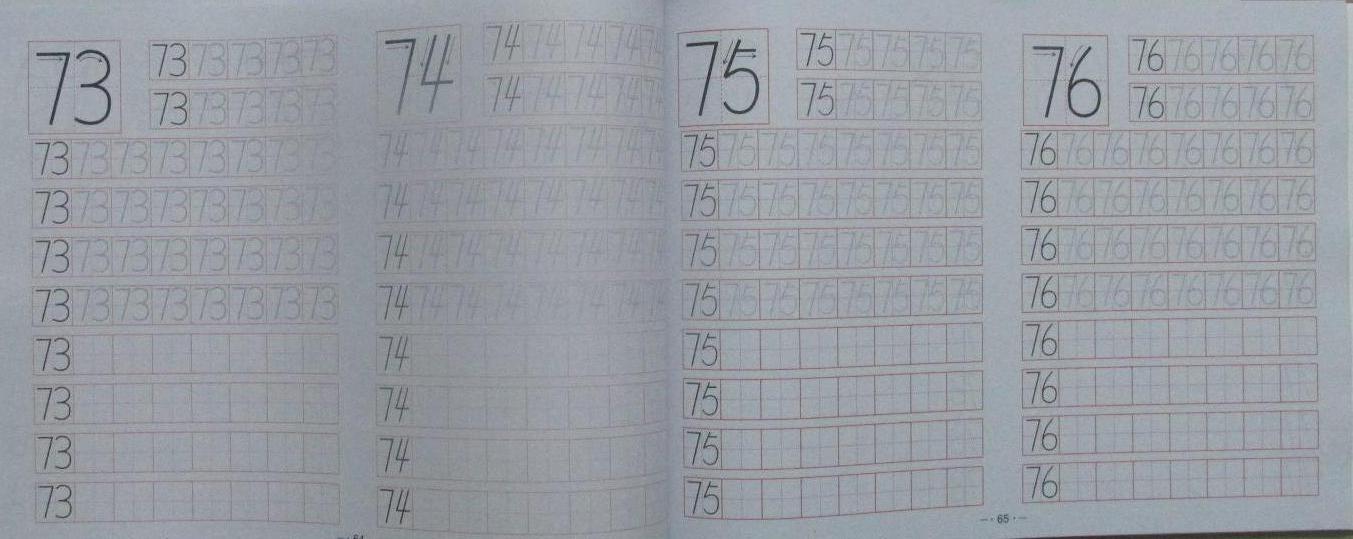 73
73 73 73 73 73
73 73 73 73 73
73 73 73 73 73 73 73 73
73 73 73 73 73 73 73 73
73 73 73 73 73 73 73 73
73 73 73 73 73 73 73 73
73
73
73
73
74
74 74 74 74 74
74 74 74 74 74
74 74 74 74 74 74 74 74
74 74 74 74 74 74 74 74
74 74 74 74 74 74 74 74
74 74 74 74 74 74 74 74
74
74
74
74
75
75 75 75 75 75
75 75 75 75 75
75 75 75 75 75 75 75 75
75 75 75 75 75 75 75 75
75 75 75 75 75 75 75 75
75 75 75 75 75 75 75 75
75
75
75
75
76
76 76 76 76 76
76 76 76 76 76
76 76 76 76 76 76 76 76
76 76 76 76 76 76 76 76
76 76 76 76 76 76 76 76
76 76 76 76 76 76 76 76
76
76
76
76
— · 65 · —